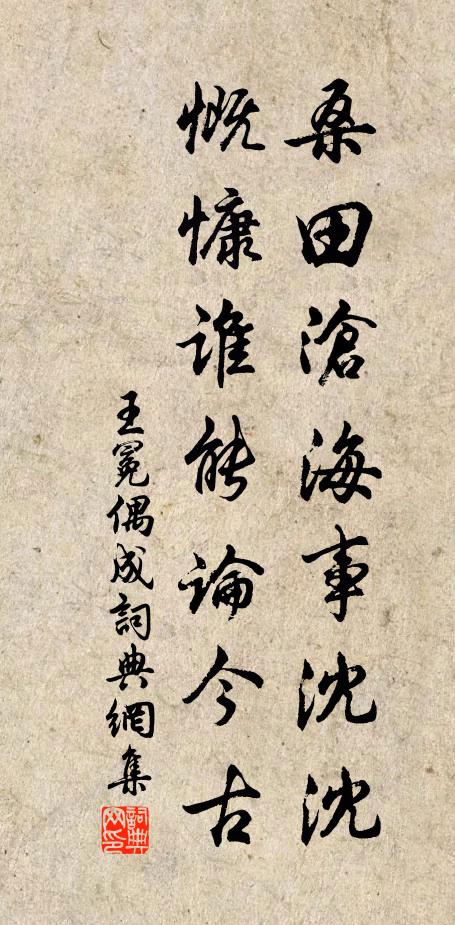 桑田滄海事沈沈
慨慷誰能論今古
王冕偶成詞典網集
詞典网印